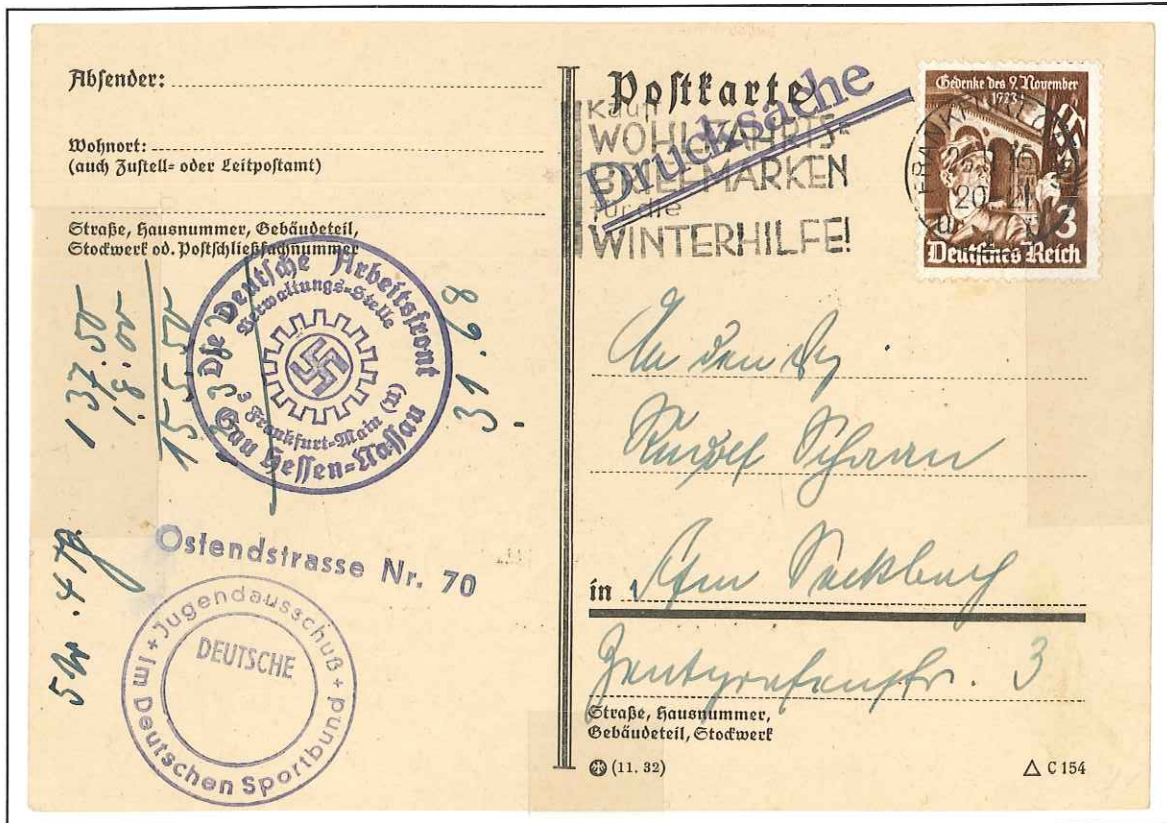 Absender:
Wohnort:
(auch Zustell- oder Leitpostamt)
Straße, Hausnummer, Gebäudeteil,
Stockwerk od. Postschließfachnummer
137.50
18.00
155.50
Die Deutsche Arbeitsfront
Verwaltungs-Stelle
3 Frankfurt-Main (n)
Gau Hessen-Nassau
Ostendstrasse Nr. 70
+ Jugendausschuß + im Deutschen Sportbund
DEUTSCHE
Postkarte
Drucksache
Kauft
WOHLFAHRTS-
BRIEFMARKEN
für die
WINTERHILFE!
Gedenke des 9. November
1923
3
Deutsches Reich
FRANKFURT
20
An den
Rudolf Schaan
in Ffm Seckbach
Zentgrafenstr. 3
Straße, Hausnummer,
Gebäudeteil, Stockwerk
(11. 32)
C 154